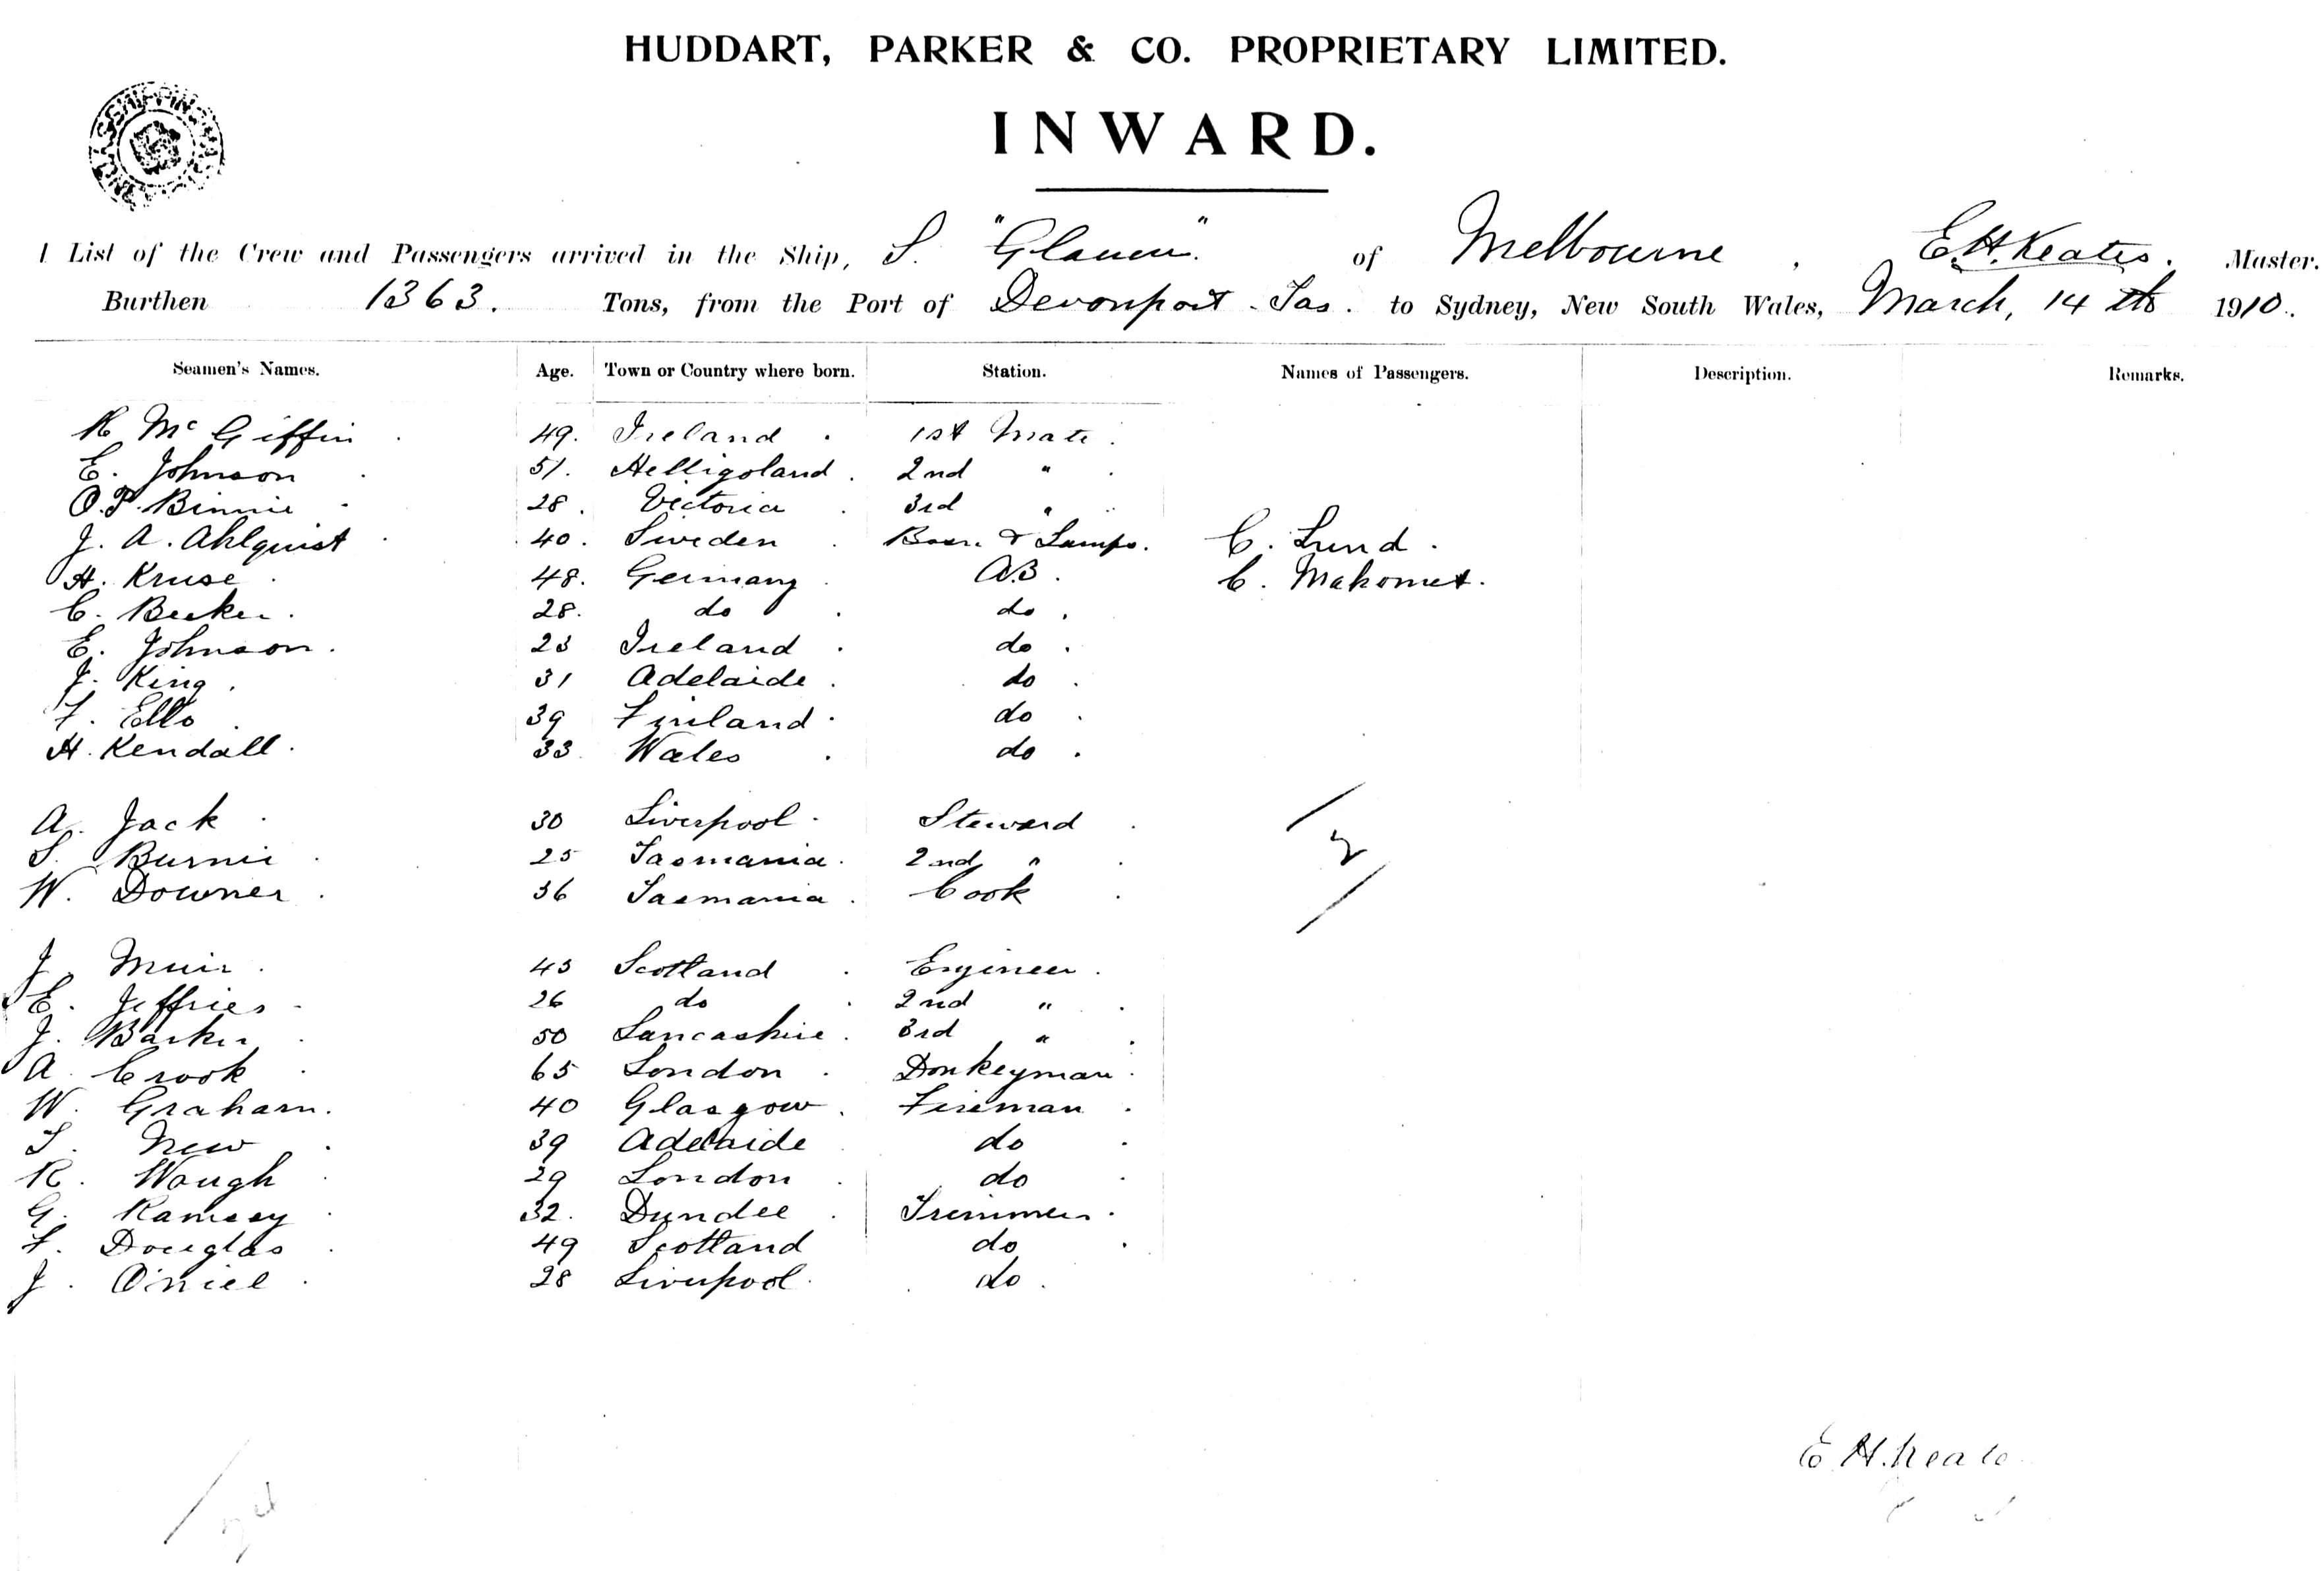 HUDDART, PARKER & CO. PROPRIETARY LIMITED.
INWARD.
List of the Crew and Passengers arrived in the Ship, S. "Glaucus" of Melbourne, E.H. Keates. Master.
Burthen 1363. Tons, from the Port of Devonport Tas. to Sydney, New South Wales, March, 14th 1910.
Seamen's Names. Age. Town or Country where born. Station. Names of Passengers. Description. Remarks.
R McGiffin 49. Ireland 1st Mate
E. Johnson 51. Helligoland 2nd "
O.P. Binnie 28. Victoria 3rd "
J. A. Ahlquist 40. Sweden Bosn & Lamps. C. Lund
H. Kruse 48. Germany AB C. Mahomet
C. Becker 28. do do
E. Johnson 23 Ireland do
J. King 31 Adelaide do
F. Ello 39 Finland do
H. Kendall 33 Wales do
A. Jack 30 Liverpool Steward
S. Burnie 25 Tasmania 2nd "
2
W. Downer 36 Tasmania Cook
J. Muir 45 Scotland Engineer
E. Jeffries 26 do 2nd "
J. Barker 50 Lancashire 3rd "
A. Crook 65 London Donkeyman
W. Graham 40 Glasgow Fireman
T. New 39 Adelaide do
R. Waugh 29 London do
G. Ramsey 32. Dundee Trimmer
F. Douglas 49 Scotland do
J. O'niel 28 Liverpool do
E H. Keates